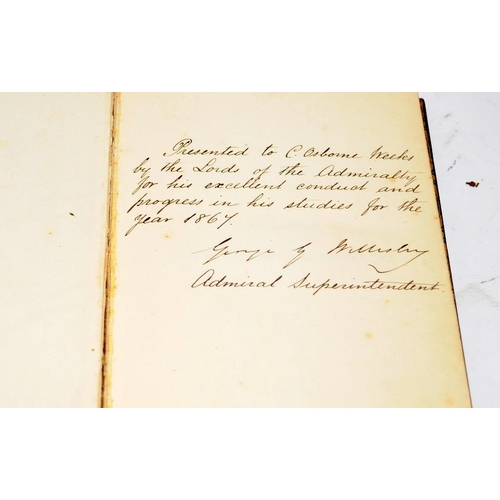 Presented to C. Osborne Weeks
by the Lords of the Admiralty
for his excellent conduct and
progress in his studies for the
year 1867.
George G Wellesley
Admiral Superintendent.